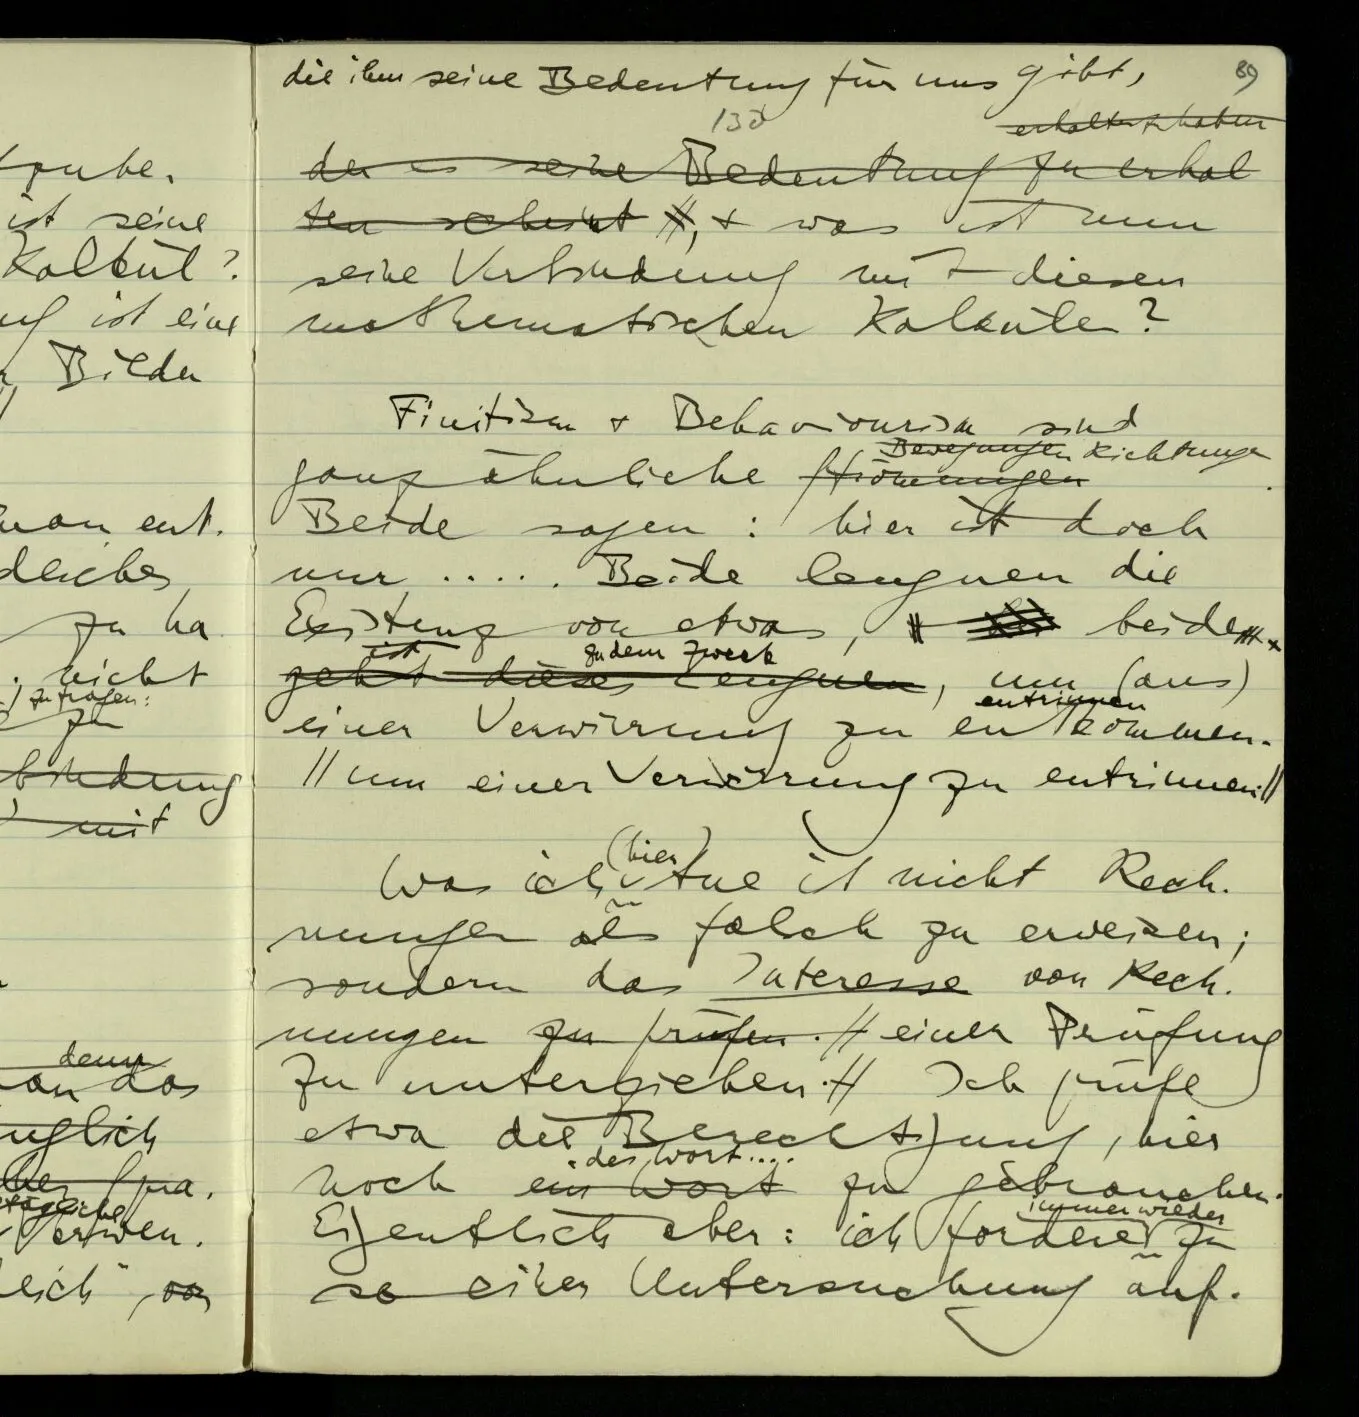 trube.
ist seine
Kalkül?
ist eine
Bilder
man ent.
dliches
zu ha
. nicht
zu fragen:
zu
bindung
mit
denn
man das
nglich
Verwen.
leich", von
89
die ihm seine Bedeutung für uns gibt,
130
erhalten zu haben
der es seine Bedeutung zu erhal
ten scheint, + was ist nun
seine Verbindung mit diesen
mathematischen Kalkülen?
Finitism + Behaviourism sind
Bewegungen Richtungen
ganz ähnliche Strömungen.
Beide sagen: hier ist doch
nur ..... Beide leugnen die
Existenz von etwas, beide
ist zu dem Zweck
geht dieses Leugnen, um (aus)
entrinnen
einer Verwirrung zu entkommen.
// um einer Verwirrung zu entrinnen //
(hier)
Was ich tue ist nicht Rech.
nungen als falsch zu erweisen;
sondern das Interesse von Rech.
nungen zu prüfen. // einer Prüfung
zu unterziehen. // Ich prüfe
etwa die Berechtigung, hier
das Wort....
noch ein Wort zu gebrauchen.
immer wieder
Eigentlich aber: ich fordere zu
so einer Untersuchung auf.